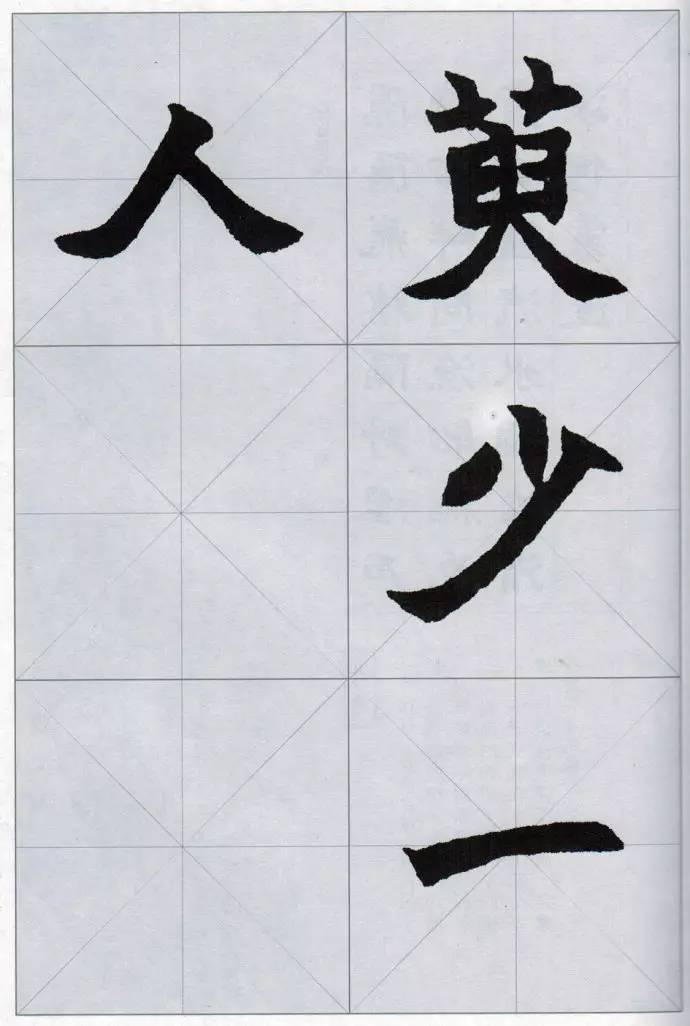 萸少一
人